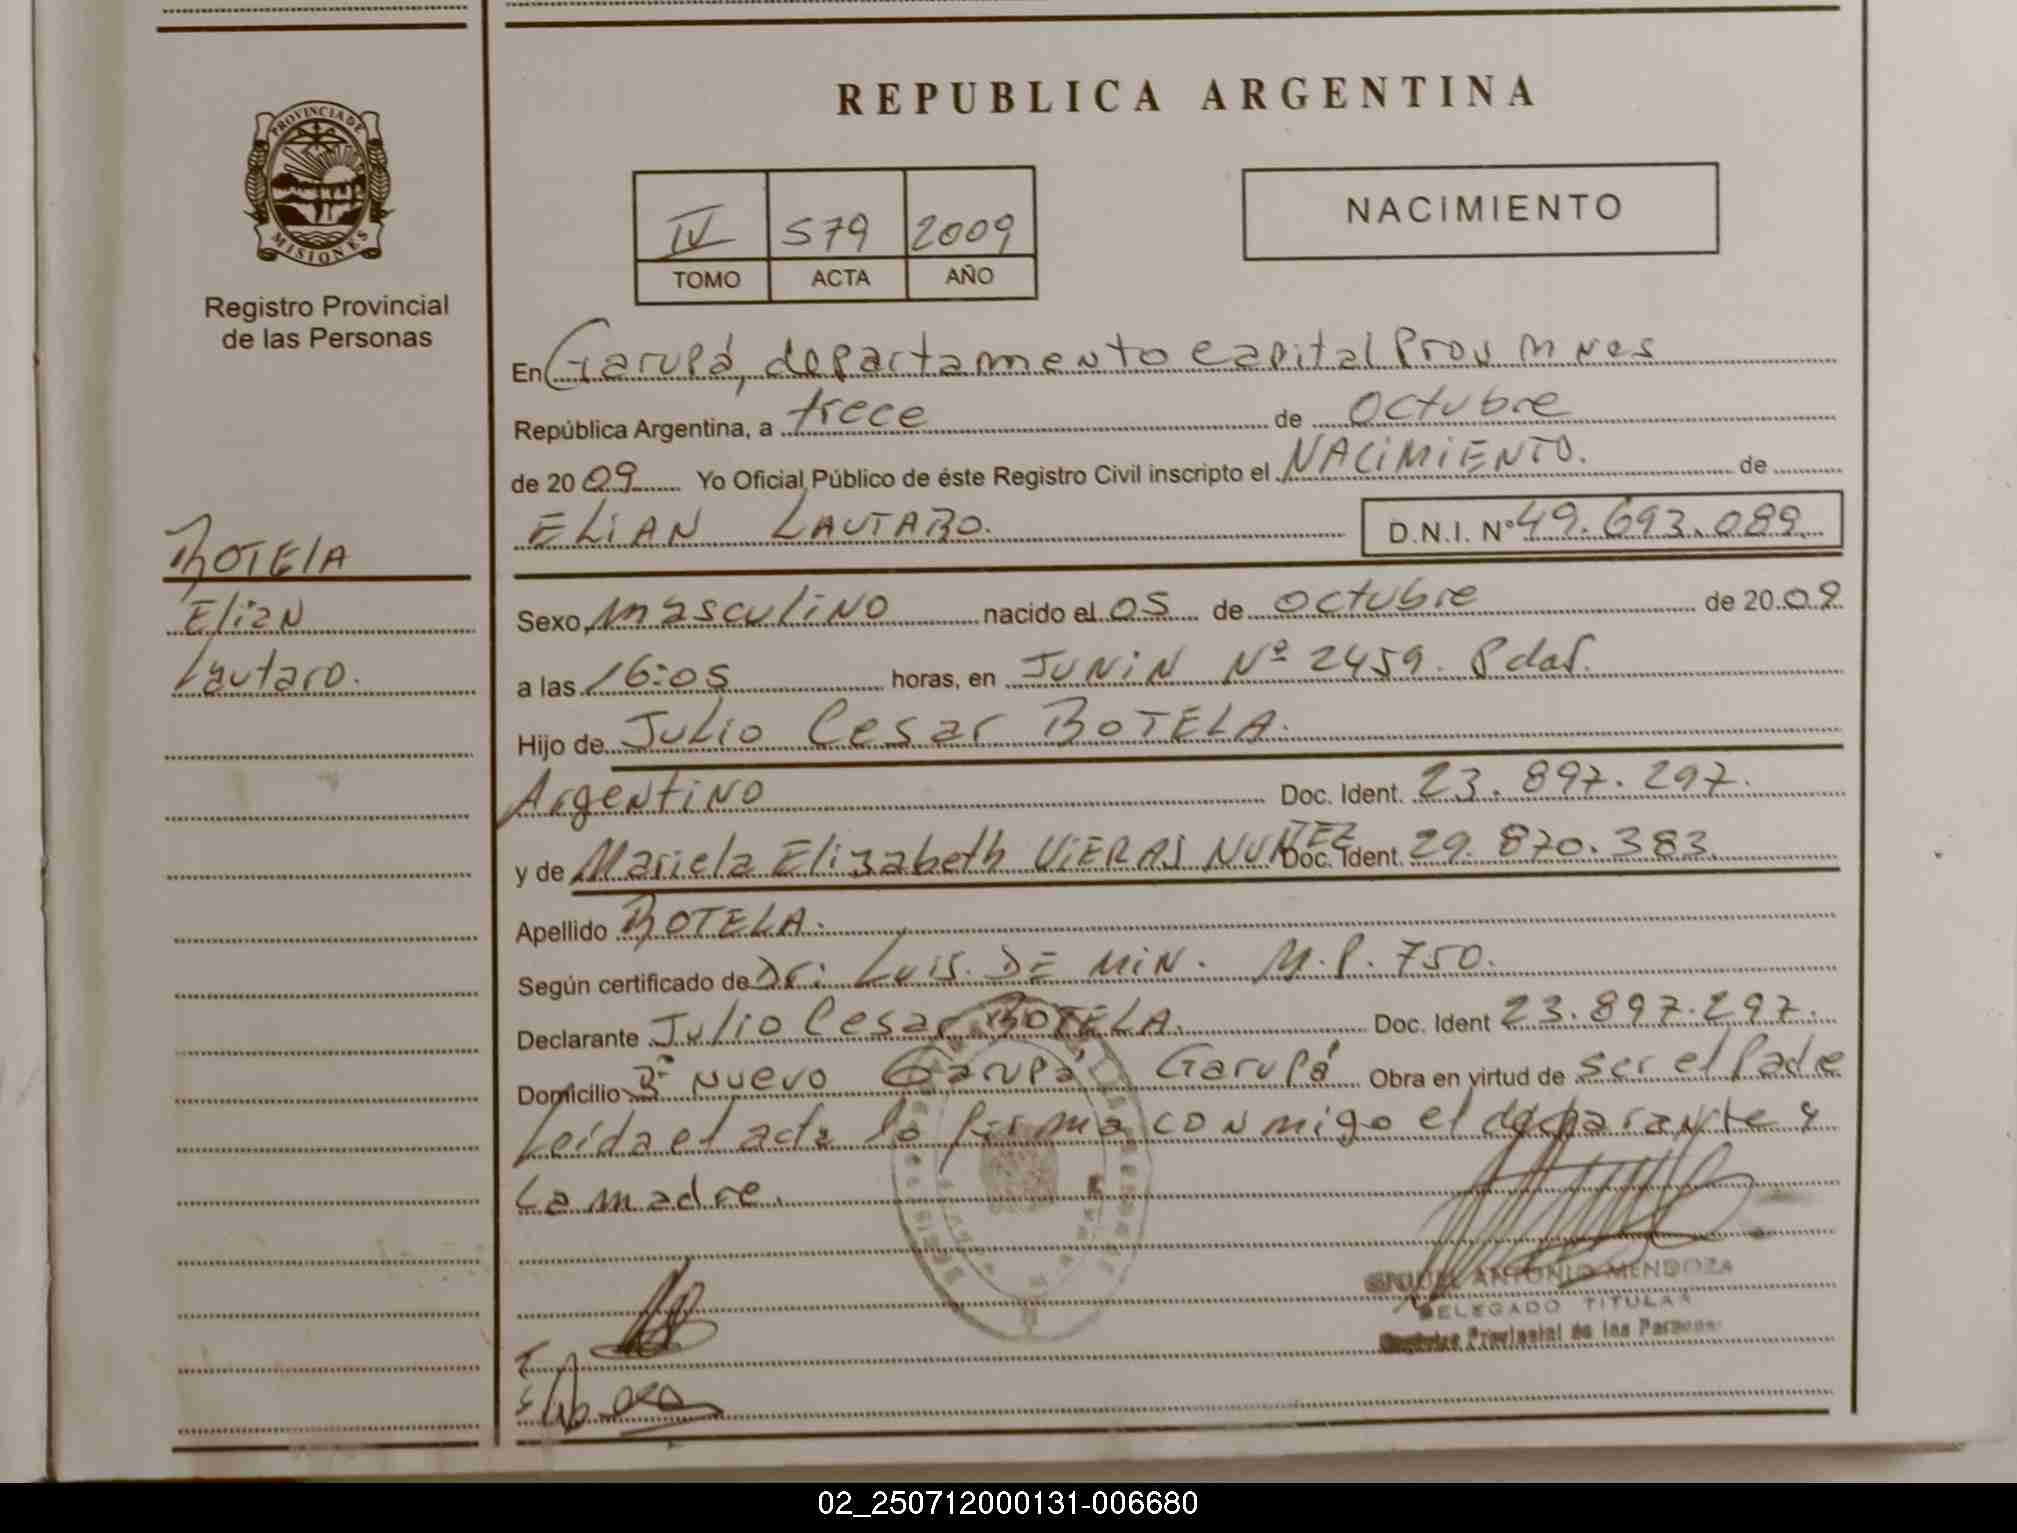 REPUBLICA ARGENTINA
PROVINCIA DE
MISIONES
Registro Provincial
de las Personas
IV 579 2009
TOMO ACTA AÑO
NACIMIENTO
En Garupá, departamento Capital Prov Mnes
República Argentina, a trece de octubre
de 2009 Yo Oficial Público de éste Registro Civil inscripto el NACIMIENTO. de
ELIAN LAUTARO. D.N.I. Nº 49.693.089
BOTELA
Elian
Lautaro.
Sexo masculino nacido el 05 de octubre de 2009
a las 16:05 horas, en JUNIN Nº 2459. Pdas.
Hijo de Julio Cesar BOTELA.
Argentino Doc. Ident. 23.897.297.
y de Mariela Elizabeth VIERAS NUÑEZ Doc. Ident. 29.870.383
Apellido BOTELA.
Según certificado de Dr: Luis. DE MIN. M.P. 750.
Declarante Julio Cesar BOTELA. Doc. Ident 23.897.297.
Domicilio Bº Nuevo Garupá Garupá Obra en virtud de ser el Padre
Leída el acta la firma conmigo el declarante y
La madre.
ANTONIO MENDOZA
DELEGADO TITULAR
Registro Provincial de las Personas
02_250712000131-006680